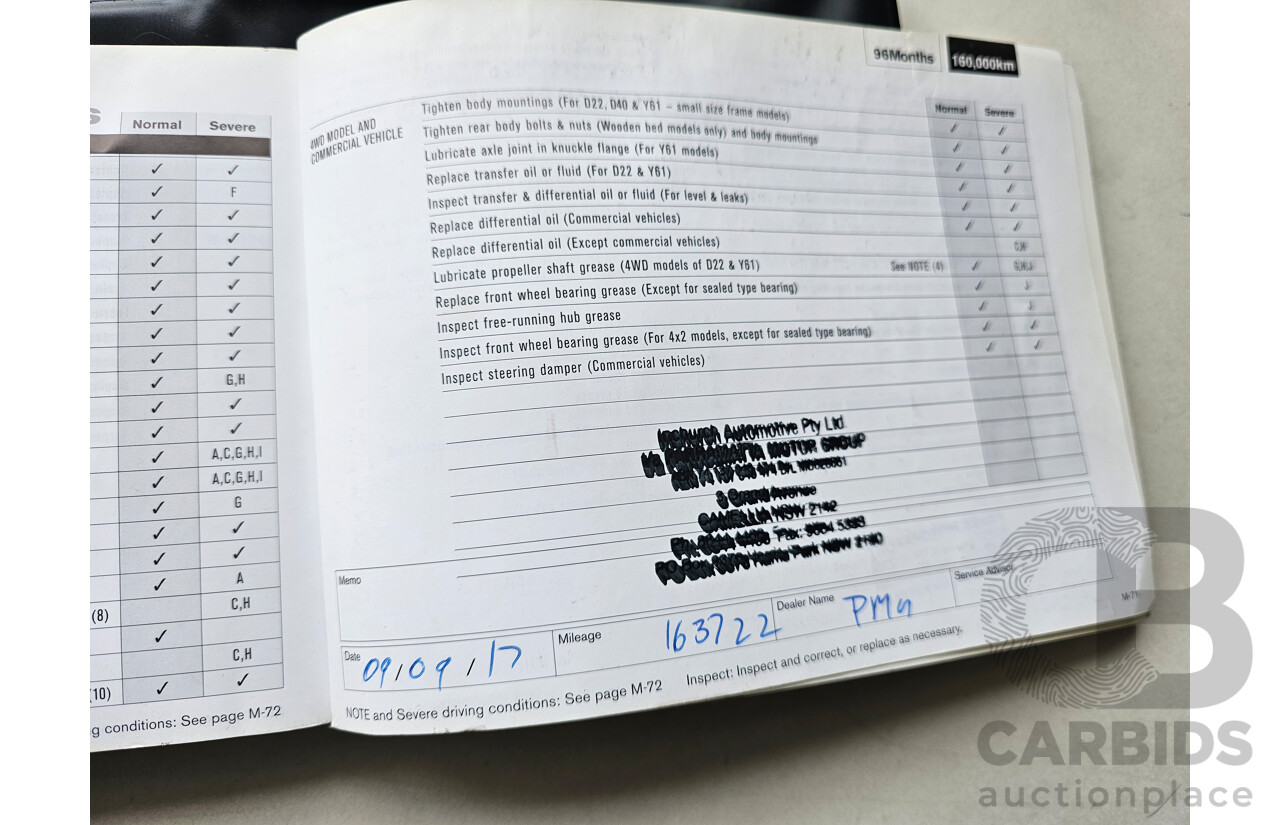 S
Normal Severe
✓ ✓
✓ F
✓ ✓
✓ ✓
✓ ✓
✓ ✓
✓ ✓
✓ ✓
✓ ✓
✓ G,H
✓ ✓
✓ ✓
✓ A,C,G,H,I
✓ A,C,G,H,I
✓ G
✓ ✓
✓ ✓
✓ A
(8) C,H
✓
C,H
(10) ✓ ✓
g conditions: See page M-72
96Months 160,000km
Normal Severe
4WD MODEL AND
COMMERCIAL VEHICLE
Tighten body mountings (For D22, D40 & Y61 – small size frame models)
Tighten rear body bolts & nuts (Wooden bed models only) and body mountings
Lubricate axle joint in knuckle flange (For Y61 models)
Replace transfer oil or fluid (For D22 & Y61)
Inspect transfer & differential oil or fluid (For level & leaks)
Replace differential oil (Commercial vehicles)
Replace differential oil (Except commercial vehicles)
Lubricate propeller shaft grease (4WD models of D22 & Y61) See NOTE (4)
Replace front wheel bearing grease (Except for sealed type bearing)
Inspect free-running hub grease
Inspect front wheel bearing grease (For 4x2 models, except for sealed type bearing)
Inspect steering damper (Commercial vehicles)
Automotive Pty Ltd
PARRAMATTA MOTOR GROUP
Grand Avenue
CAMELLIA NSW 2142
Fax: 9684 5383
PO Box Harris Park NSW 2150
Memo
Date 09/09/17 Mileage 163722 Dealer Name PMG Service Advisor
M-71
NOTE and Severe driving conditions: See page M-72 Inspect: Inspect and correct, or replace as necessary.
CARBIDS
auctionplace